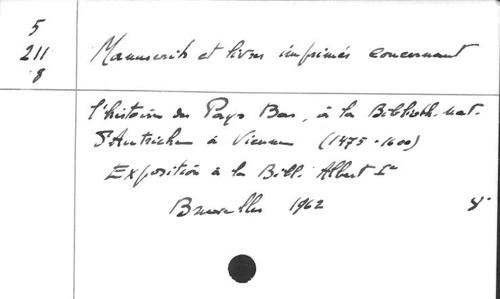 5
211
8
Manuscrits et livres imprimés concernant
l'histoire des Pays Bas, à la Biblioth. nat.
d'Autriche à Vienne (1475-1600)
Exposition à la Bibl. Albert Ier
Bruxelles 1962 8°